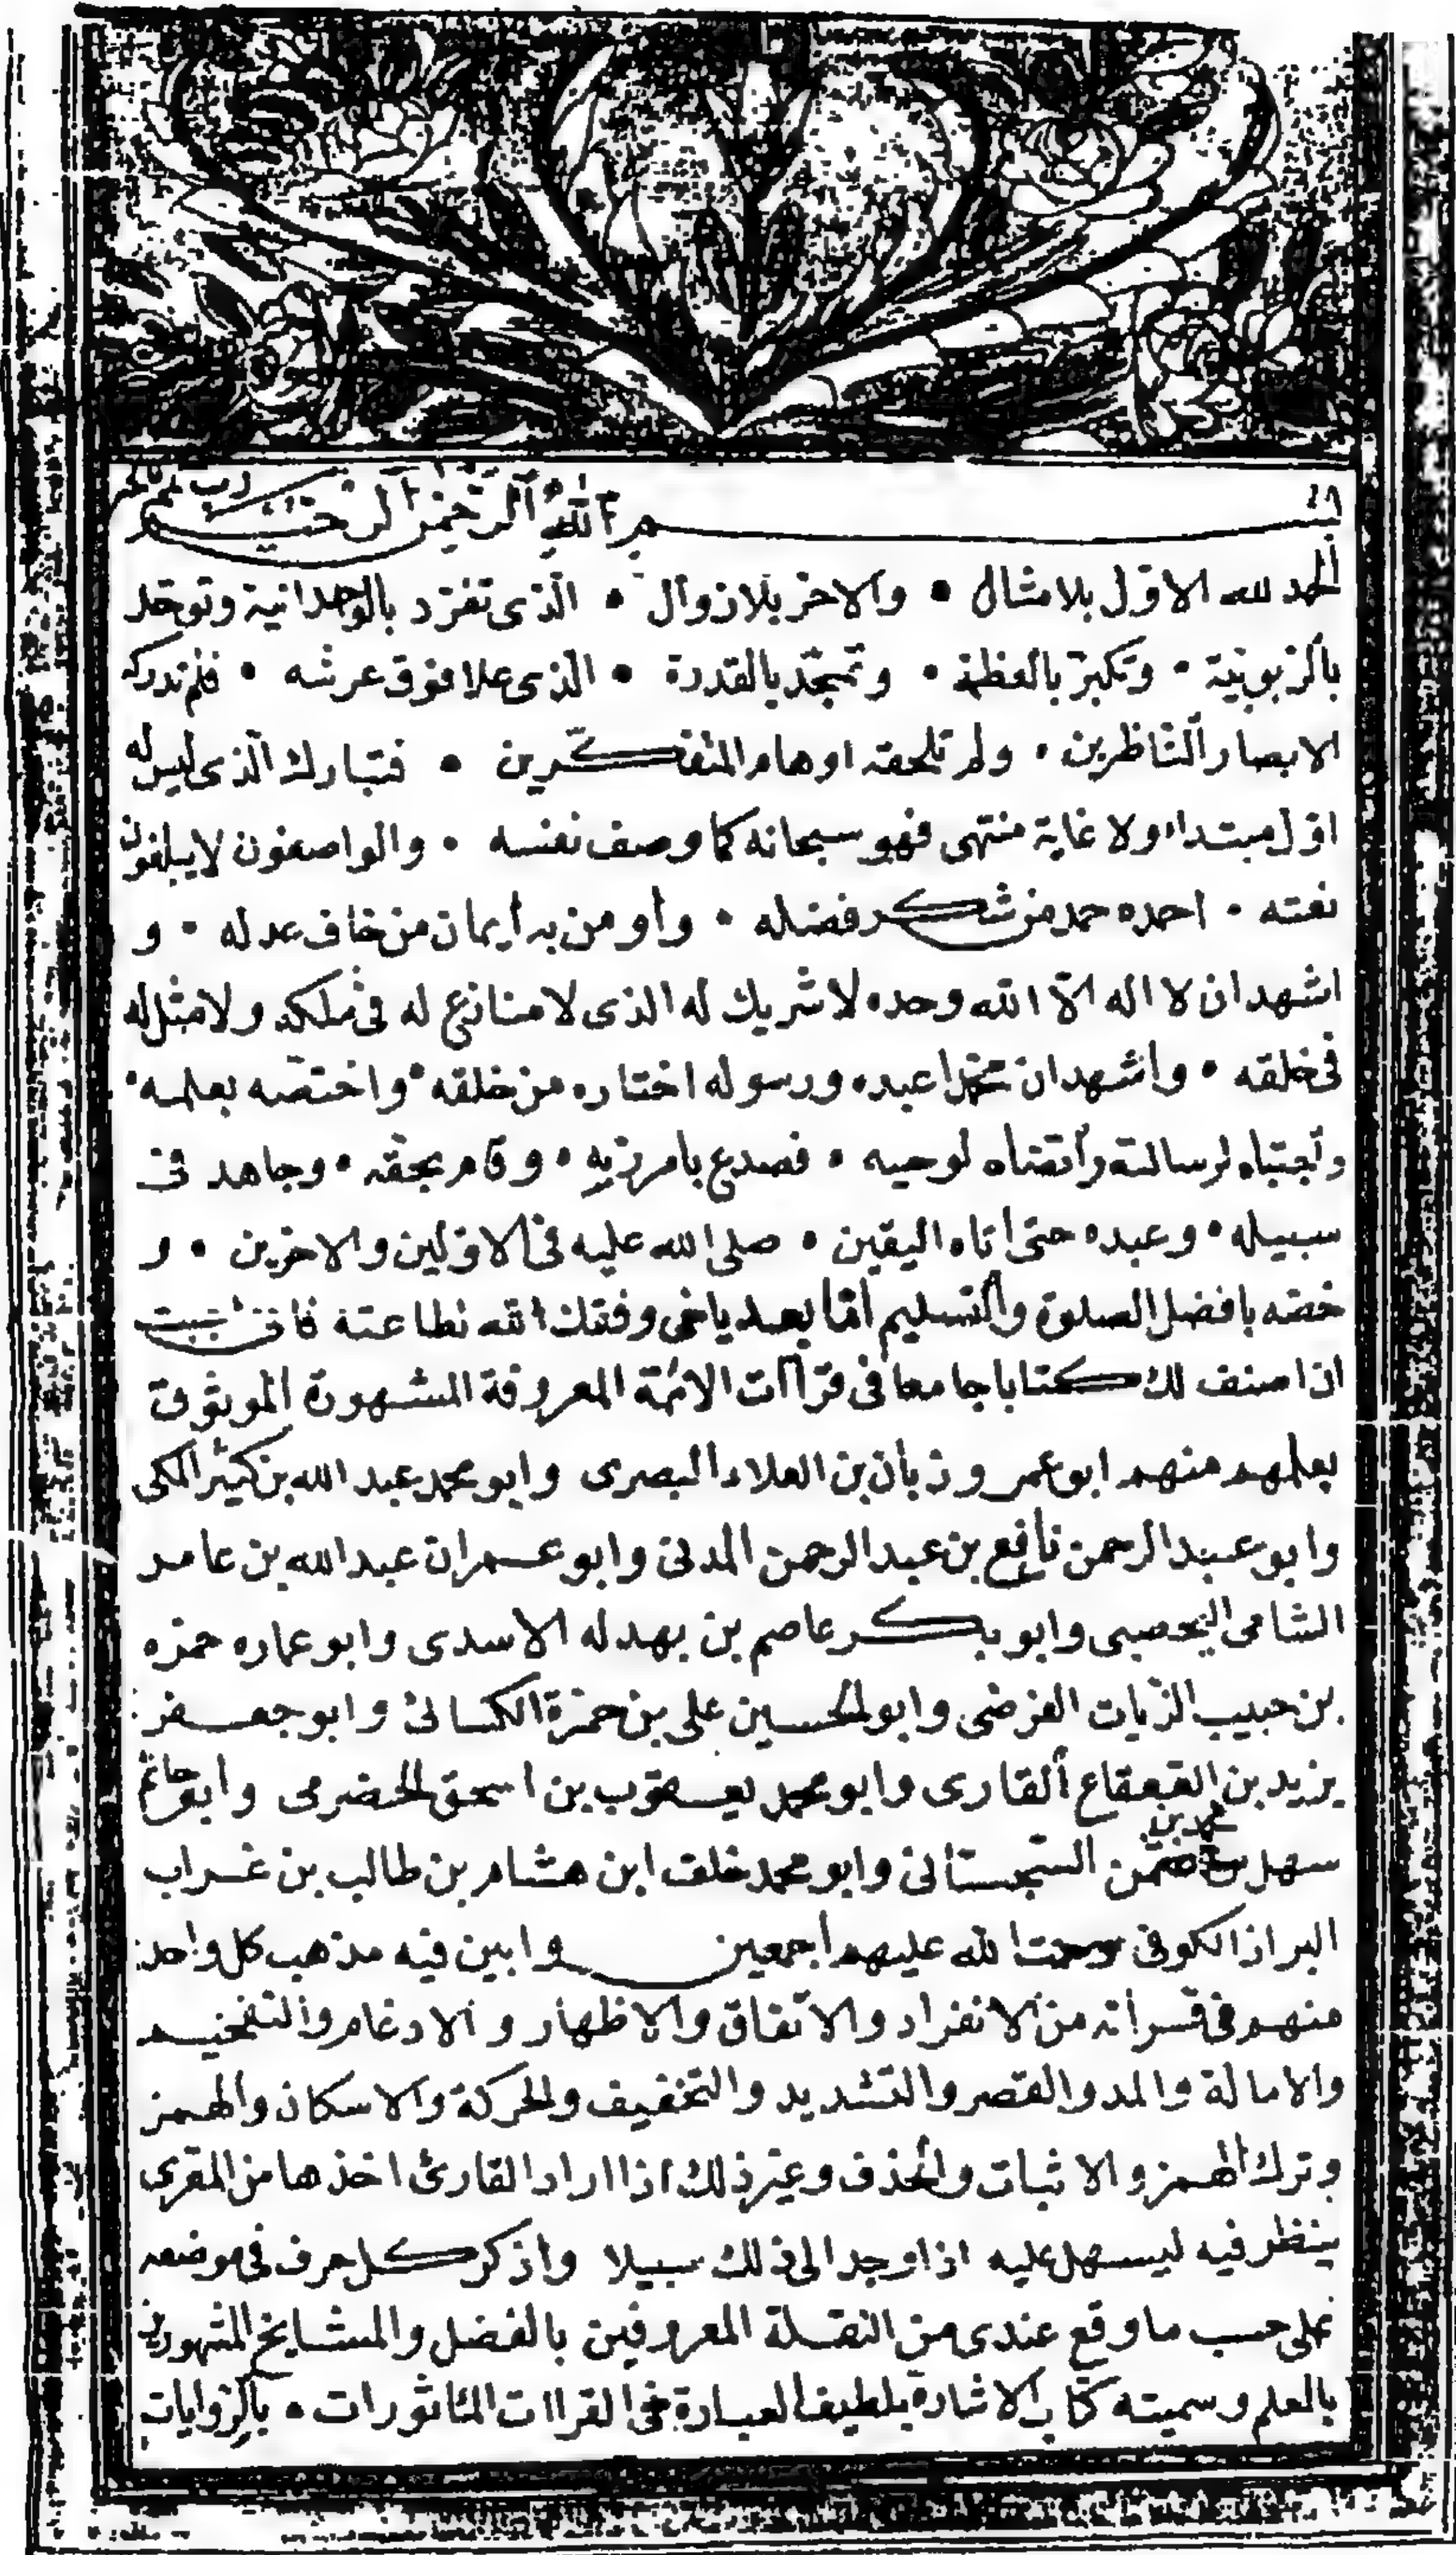 بسم الله الرحمن الرحيم رب تمم بالخير
الحمد لله الاوّل بلا مثال • والاخر بلا زوال • الّذى تفرّد بالوحدانية وتوحّد
بالرّبوبيّة • وتكبّر بالعظمة • وتمجّد بالقدرة • الّذى علا فوق عرشه • فلم تدركه
الابصار النّاظرين • ولم تلحقه اوهام المتفكّرين • فتبارك الّذى ليس له
اوّل مبتداء ولا غاية منتهى فهو سبحانه كما وصف نفسه • والواصفون لا يبلغون
نعته • احمده حمد من شكر فضله • وأومن به أيمان من خاف عدله • و
اشهد ان لا اله الّا الله وحده لا شريك له الذى لا منازع له فى ملكه ولا مثل له
فى خلقه • وأشهد ان محمّدا عبده ورسوله اختاره من خلقه • واختصّه بعلمه •
وأجتباه لرسالته وأتضاه لوحيه • فصدع بامر ربّه • وقام بحقّه • وجاهد فى
سبيله • وعبده حتى أتاه اليقين • صلى الله عليه فى الاوّلين والاخرين • و
خصّه بافضل الصلوة والتسليم امّا بعد ياخى وفقك الله لطاعته فا
ان اصنف لك كتابا جامعا فى قراأت الائمّة المعروفة المشهورة الموثوق
بعلمهم منهم ابو عمرو زبان بن العلاء البصرى وابو محمد عبد الله بن كثير المكى
وابو عبد الرحمن نافع بن عبد الرحمن المدنى وابو عمران عبد الله بن عامر
الشامى اليحصبى وابو بكر عاصم بن بهدله الاسدى وابو عماره حمزه
بن حبيب الزيات الفرضى وابو لحسين على بن حمزة الكسائى وابو جعفر
يزيد بن القعقاع ألقارى وابو محمد يعقوب بن اسحق الحضرمى وابو حاتم
سهل بن محمد بن السّجستانى وابو محمد خلف ابن هشام بن طالب بن غراب
البراز الكوفى رحمت الله عليهم اجمعين وابين فيه مذهب كل واحد
منهم فى قسرأته من الانفراد والاتّفاق والاظهار والادغام والتفخيم
والامالة والمد والقصر والتشديد والتخفيف والحركة والاسكان والهمز
وترك الهمز والاثبات والحذف وغير ذلك اذا اراد القارئ اخذها من المقرى
ينظر فيه ليسهل عليه اذا وجد الى ذلك سبيلا واذكر كل حرف فى موضعه
على حسب ما وقع عندى من النقلة المعروفين بالفضل والمشايخ المشهورين
بالعلم وسميته كتاب الاشارة بلطيف العبارة فى القراات المأثورات • بالرّوايات